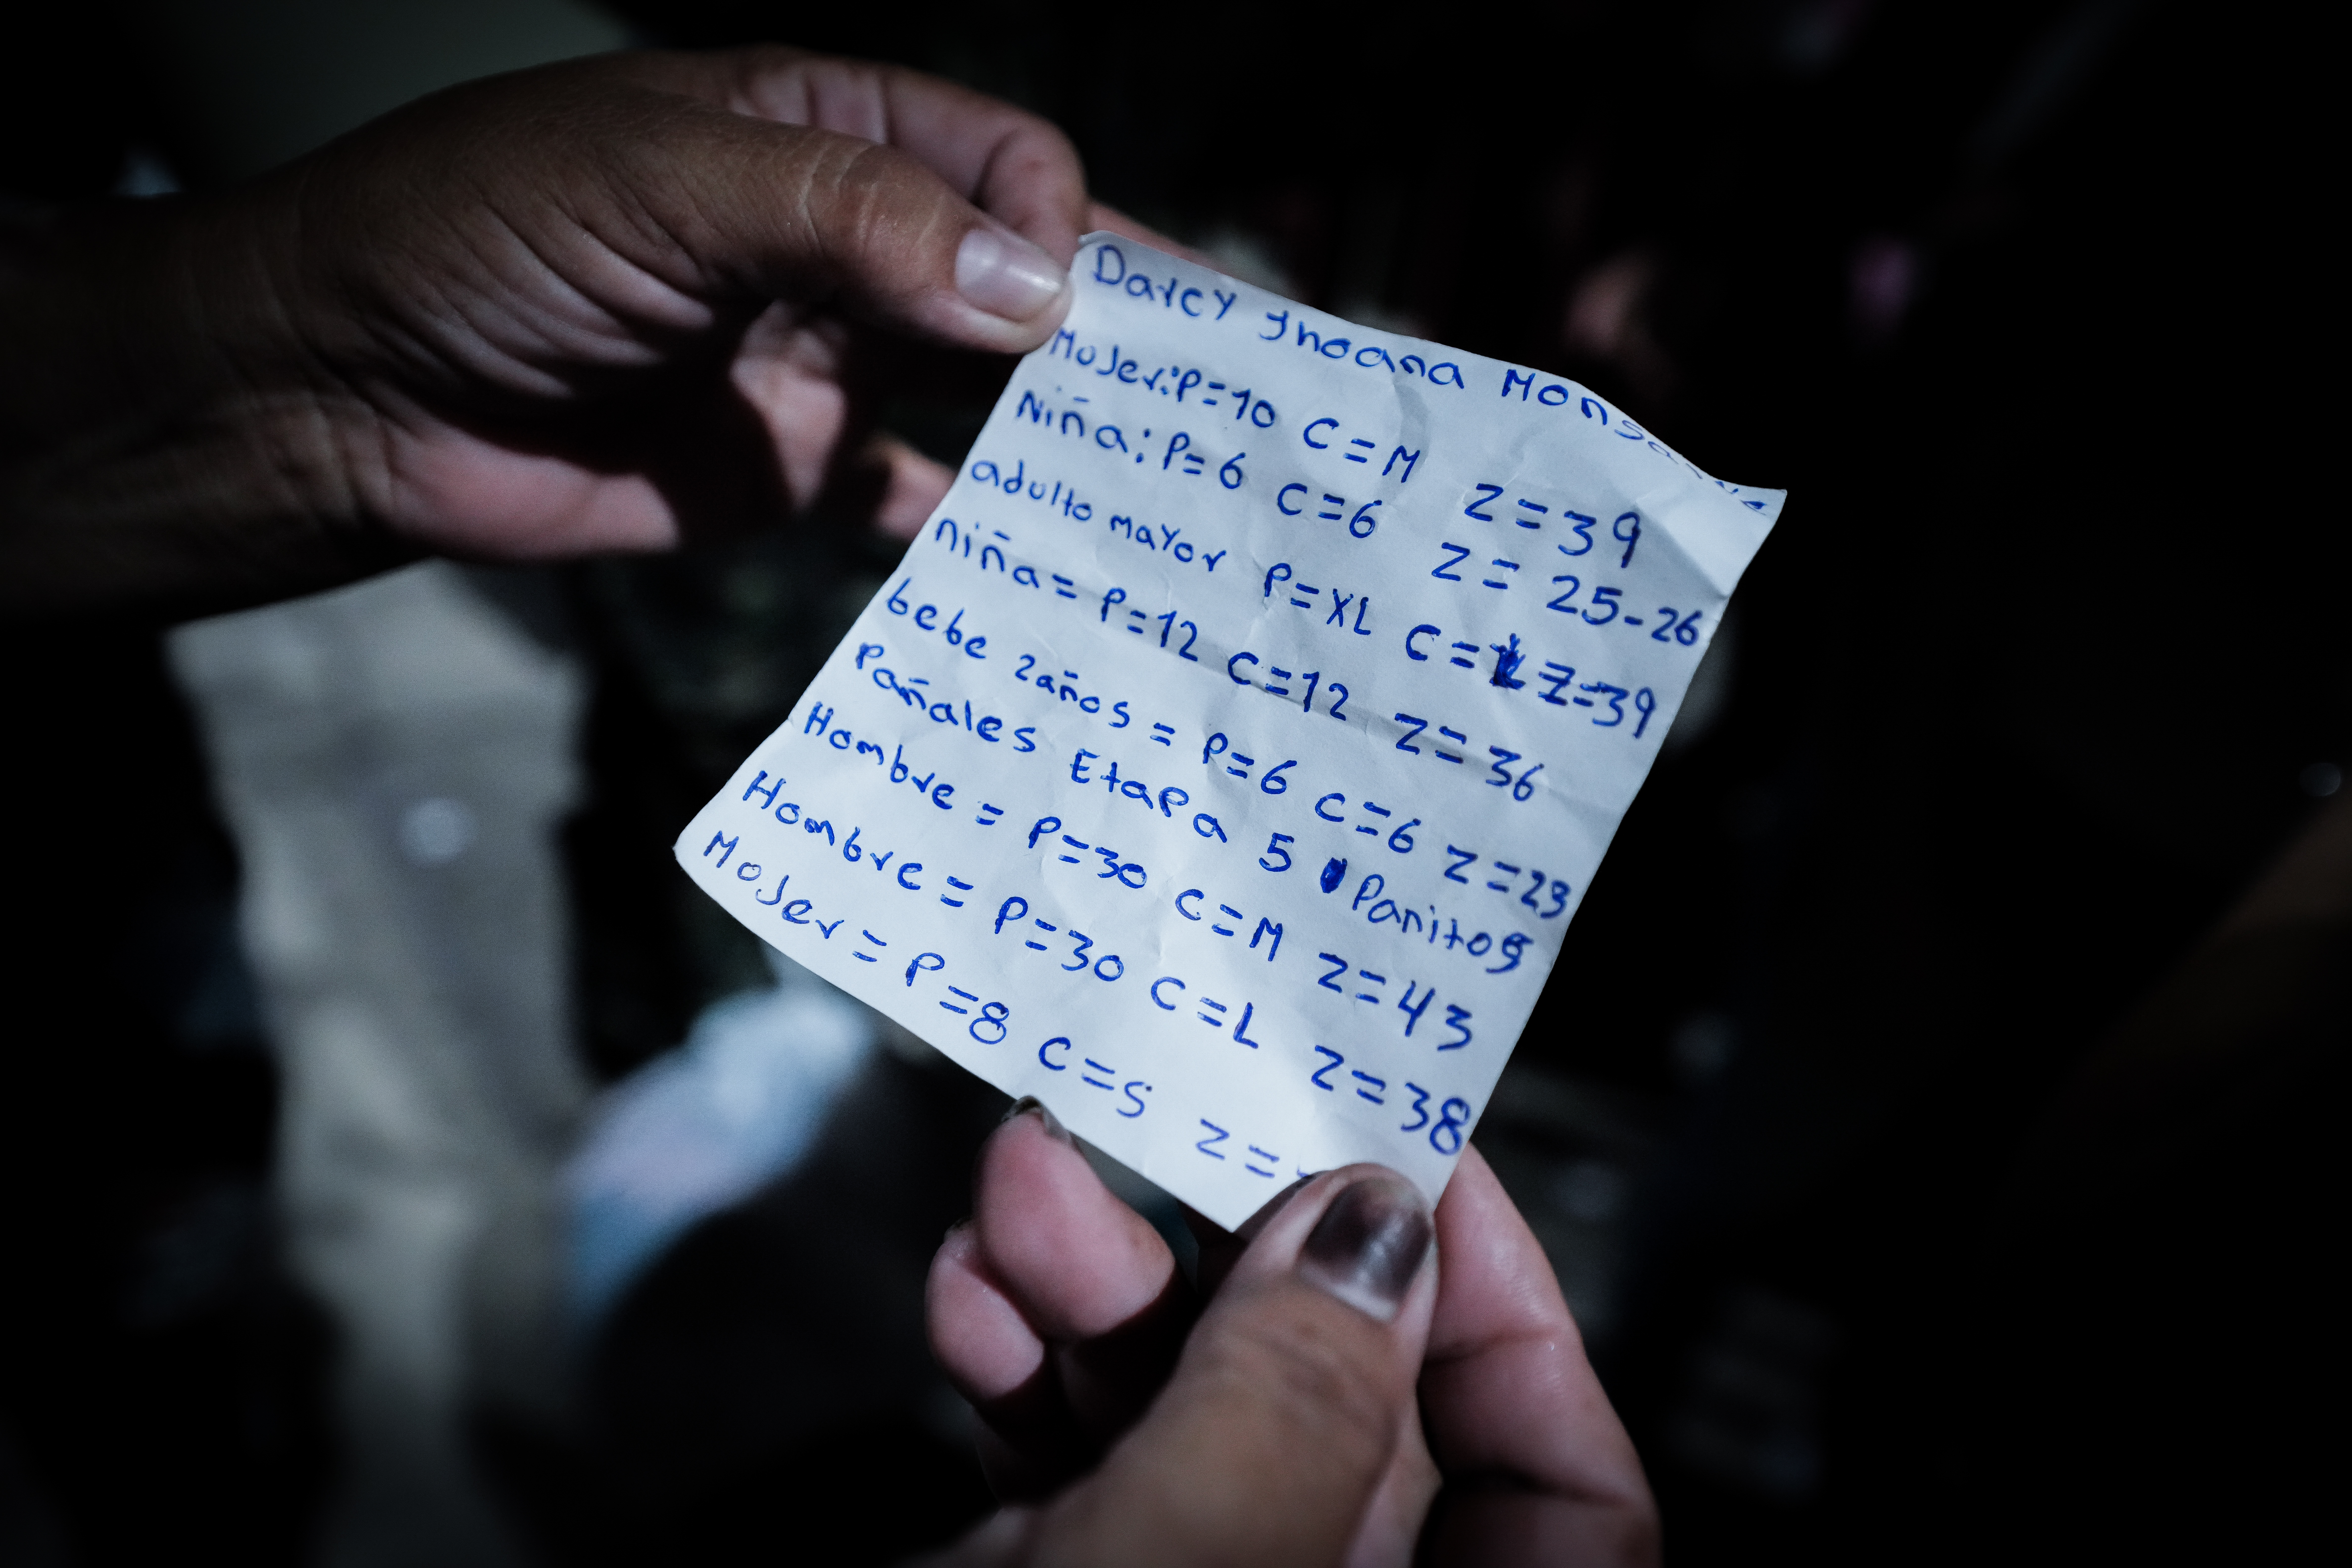 Darcy Jhoana
Mujer: P=10 C=M Z=39
Niña: P=6 C=6 Z=25-26
adulto mayor P=XL C= Z=39
niña= P=12 C=12 Z=36
bebe 2años = P=6 C=6 Z=23
Pañales Etapa 5 Panitos
Hombre = P=30 C=M Z=43
Hombre = P=30 C=L Z=38
Mujer = P=8 C=S Z=